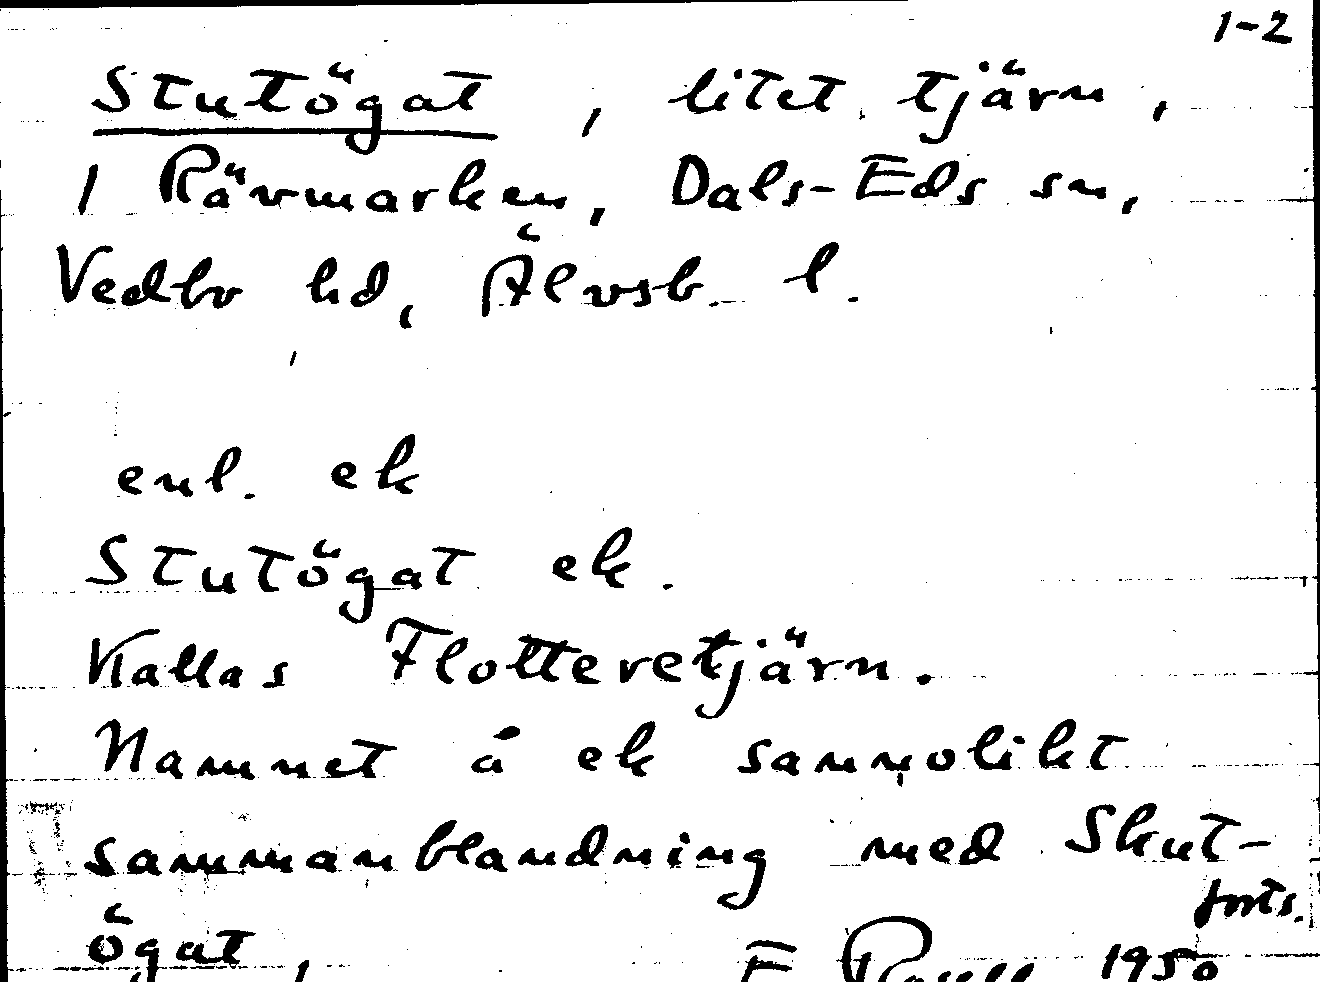 1-2
Stutögat, litet tjärn,
i Rävmarken, Dals-Eds sn,
Vedbo hd, Älvsb. l.
enl. ek
Stutögat ek.
Kallas Flottevetjärn.
Namnet å ek sannolikt
sammanblandning med Skut-
forts.
ögat,
E 1950